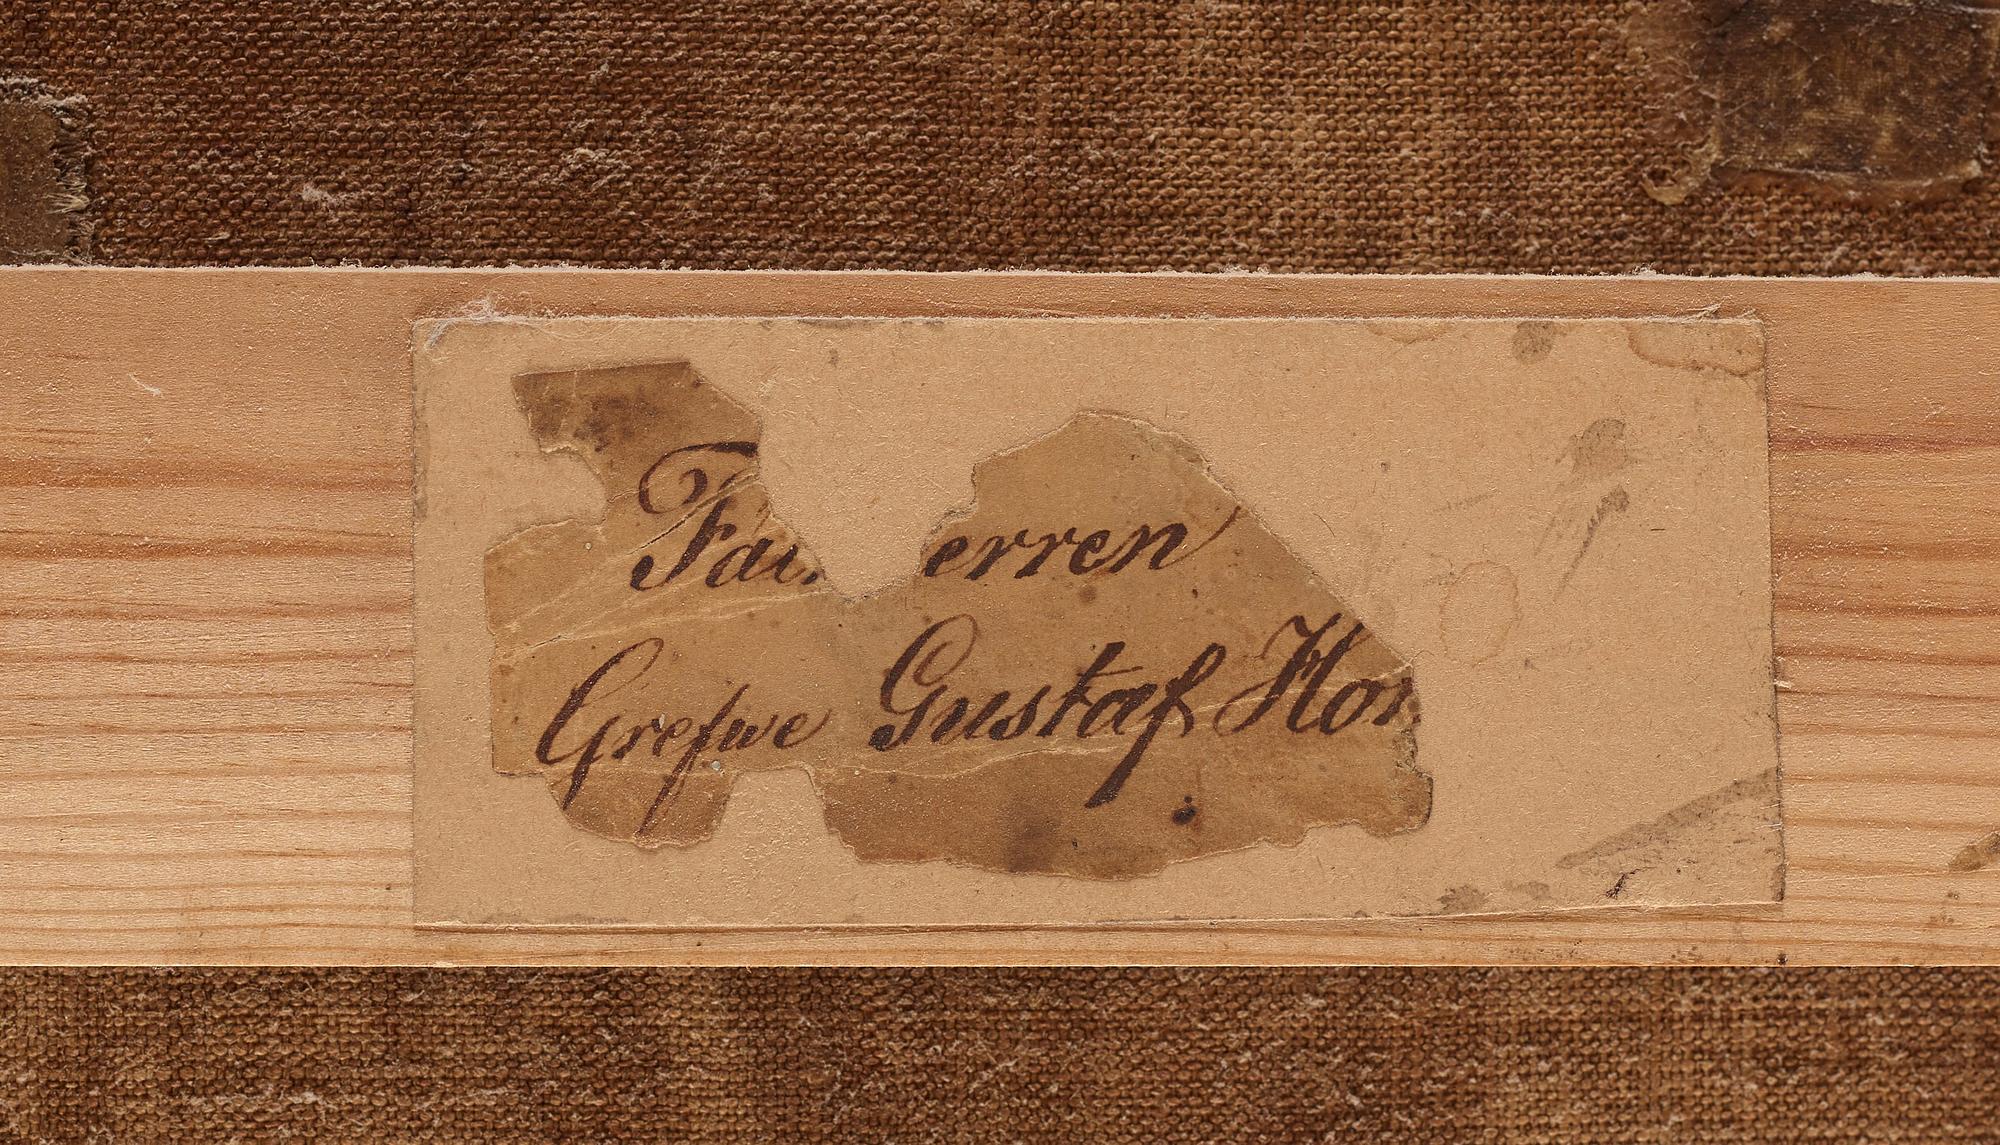 Fä erren
Grefwe Gustaf Hor